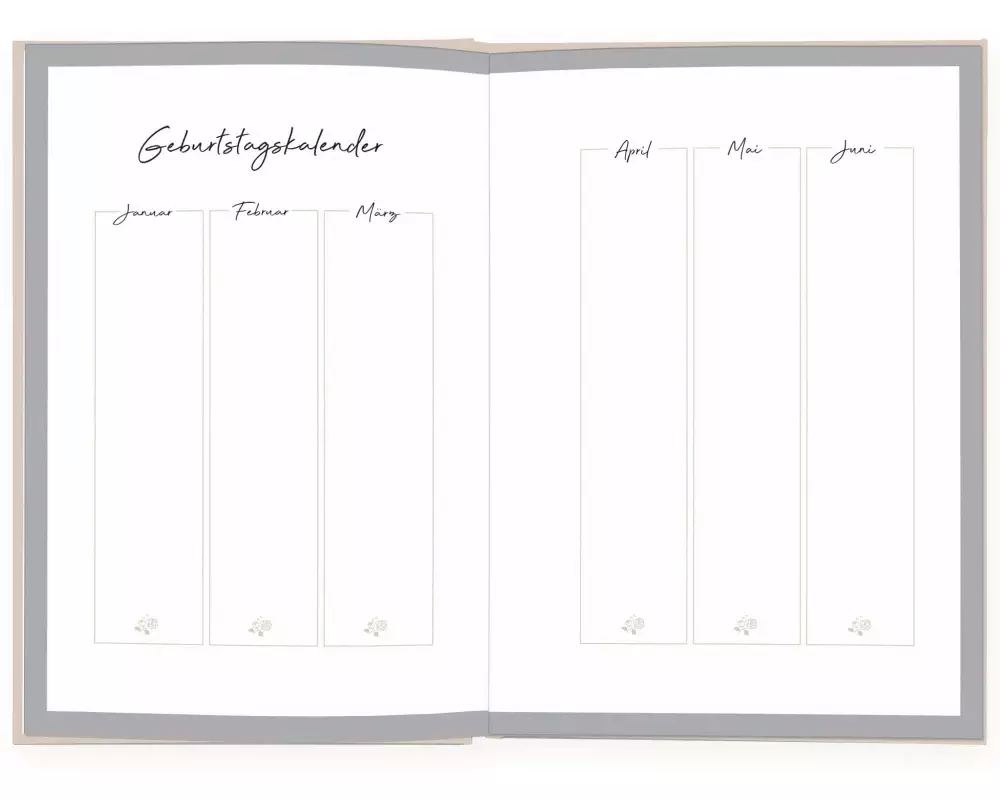 Geburtstagskalender
Januar Februar März
April Mai Juni